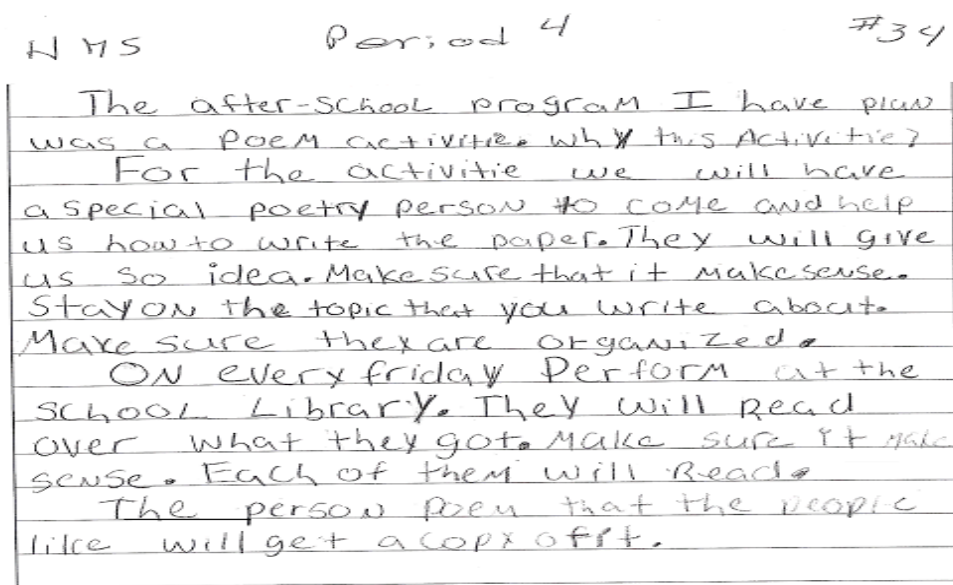 HMS Period 4 #34
The after-school program I have plan
was a poem activitie. why this Activitie?
For the activitie we will have
a special poetry person to come and help
us how to write the paper. They will give
us so idea. Make sure that it make sense.
Stay on the topic that you write about.
Make sure they are organized.
On every friday Perform at the
school Library. They will Read
over what they got. Make sure it make
sense. Each of them will Read.
The person poem that the people
like will get a copy of it.